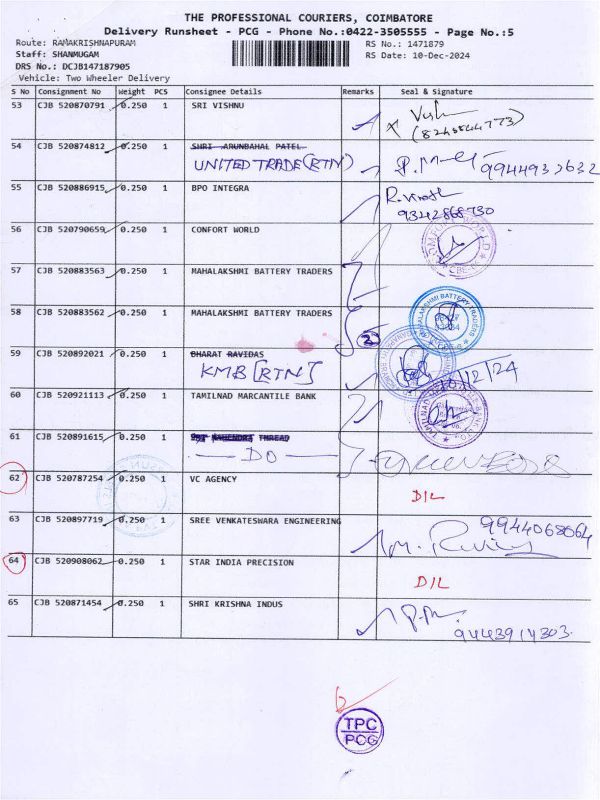 THE PROFESSIONAL COURIERS, COIMBATORE
Delivery Runsheet - PCG - Phone No.:0422-3505555 - Page No.:5
Route: RAMAKRISHNAPURAM RS No.: 1471879
Staff: SHANMUGAM RS Date: 10-Dec-2024
DRS No.: DCJB147187905
Vehicle: Two Wheeler Delivery
S No Consignment No Weight PCS Consignee Details Remarks Seal & Signature
53 CJB 520870791 0.250 1 SRI VISHNU
54 CJB 520874812 0.250 1 SHRI ARUNBAHAL PATEL
UNITED TRADE (RTN) 9944937632
55 CJB 520886915 0.250 1 BPO INTEGRA
9342868730
56 CJB 520790659 0.250 1 CONFORT WORLD
57 CJB 520883563 0.250 1 MAHALAKSHMI BATTERY TRADERS
58 CJB 520883562 0.250 1 MAHALAKSHMI BATTERY TRADERS
2
59 CJB 520892021 0.250 1 BHARAT RAVIDAS
KMB [RTN] 10/12/24
60 CJB 520921113 0.250 1 TAMILNAD MARCANTILE BANK
61 CJB 520891615 0.250 1 THREAD
DO
62 CJB 520787254 0.250 1 VC AGENCY
D/L
63 CJB 520897719 0.250 1 SREE VENKATESWARA ENGINEERING
9944068064
64 CJB 520908062 0.250 1 STAR INDIA PRECISION
D/L
65 CJB 520871454 0.250 1 SHRI KRISHNA INDUS
9443914303
TPC
PCG